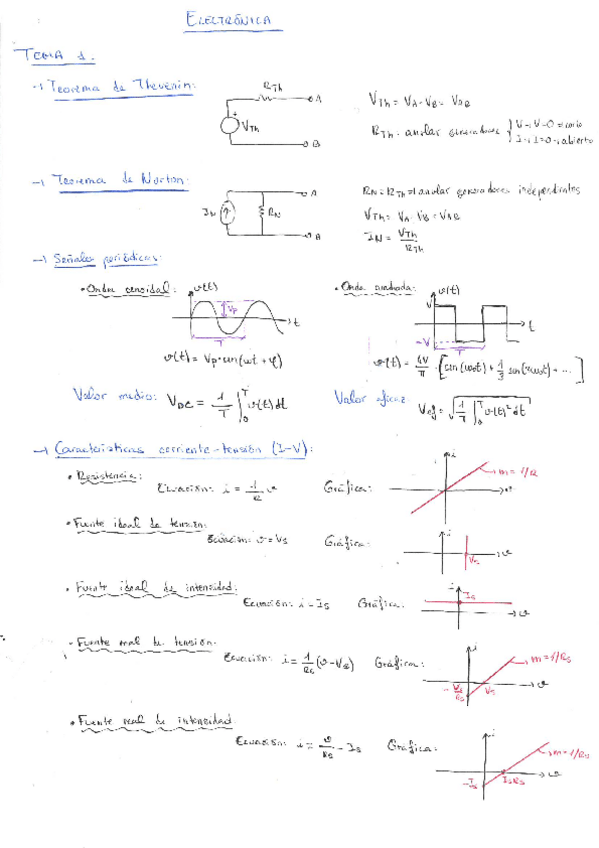 ELECTRÓNICA
TEMA 1.
→ Teorema de Thevenin:
RTh
A
VTh
B
VTh = VA - VB = VAB
RTh = anular generadores { V → V=0 = corto
I → I=0 → abierto
→ Teorema de Norton:
IN
RN
A
B
RN = RTh = anular generadores independientes
VTh = VA - VB = VAB
IN = VTh / RTh
→ Señales periódicas:
• Onda senoidal:
v(t)
Vp
T
t
v(t) = Vp·sen(ωt + φ)
• Onda cuadrada:
v(t)
V
-V
T
t
v(t) = 4V/π · [sen(ω0t) + 1/3 sen( ω0t) + ... ]
Valor medio: VDC = 1/T ∫₀ᵀ v(t) dt
Valor eficaz: Vef = √(1/T ∫₀ᵀ v(t)² dt)
→ Características corriente-tensión (I-V):
• Resistencia:
Ecuación: i = 1/R v
Gráfica:
i
m = 1/R
v
• Fuente ideal de tensión:
Ecuación: v = Vs
Gráfica:
i
Vs
v
• Fuente ideal de intensidad:
Ecuación: i = Is
Gráfica:
i
Is
v
• Fuente real de tensión:
Ecuación: i = 1/Rs (v - Vs)
Gráfica:
i
m = 1/Rs
-Vs/Rs
Vs
v
• Fuente real de intensidad:
Ecuación: i = v/Rs - Is
Gráfica:
i
m = 1/Rs
-Is
IsRs
v